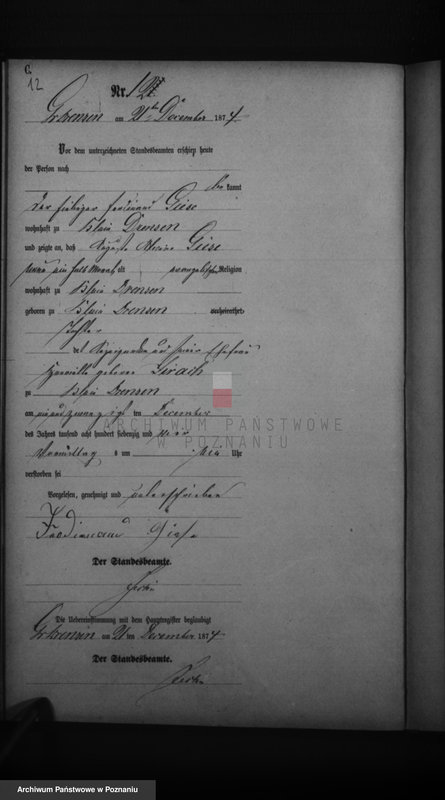 C.
12
Nr. 12.
Gr Drensen am 21ten December 1874.
Vor dem unterzeichneten Standesbeamten erschien heute
der Person nach
be kannt
der Ferdinand Giese
wohnhaft zu Klein Drensen
und zeigte an, daß Auguste Giese
neun ein halb Monat alt evangelischer Religion
wohnhaft zu Klein Drensen
geboren zu Klein Drensen verheirathet
Tochter
des und seiner Ehefrau
geborene Gerach
zu Klein Drensen
am ein und zwanzig ten December
des Jahres tausend acht hundert siebenzig und vier
Vormittag s um Uhr
verstorben sei
Vorgelesen, genehmigt und unterschrieben
Ferdinand Giese
Der Standesbeamte.
Die Uebereinstimmung mit dem Hauptregister beglaubigt
Gr Drensen am 21 ten December 1874
Der Standesbeamte.
ARCHIWUM PAŃSTWOWE
W POZNANIU
Archiwum Państwowe w Poznaniu